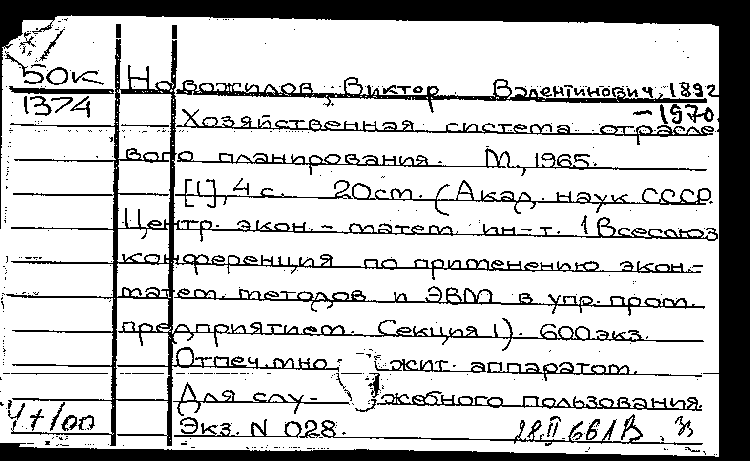 50К Новожилов, Виктор Валентинович, 1892
1374 -1970.
Хозяйственная система отрасле-
вого планирования. М., 1965.
[1], 4 с. 20 см. (Акад. наук СССР.
Центр. экон.-матем. ин-т. 1 Всесоюз.
конференция по применению экон.-
матем. методов и ЭВМ в упр. пром.
предприятием. Секция 1). 600 экз.
Отпеч. мно жит. аппаратом.
Для слу- жебного пользования.
Ч+100 Экз. N 028. 28.II.66